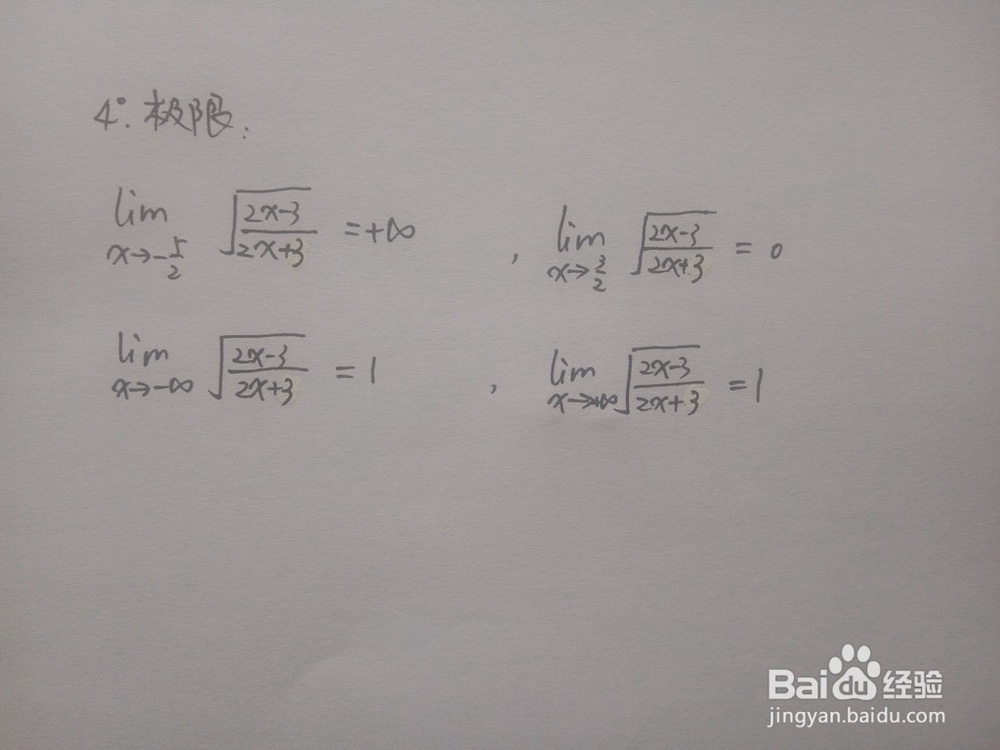 4°. 极限:
lim x→-5/2 √((2x-3)/(2x+3)) = +∞ , lim x→3/2 √((2x-3)/(2x+3)) = 0
lim x→-∞ √((2x-3)/(2x+3)) = 1 , lim x→+∞ √((2x-3)/(2x+3)) = 1
Bai du 经验
jingyan.baidu.com